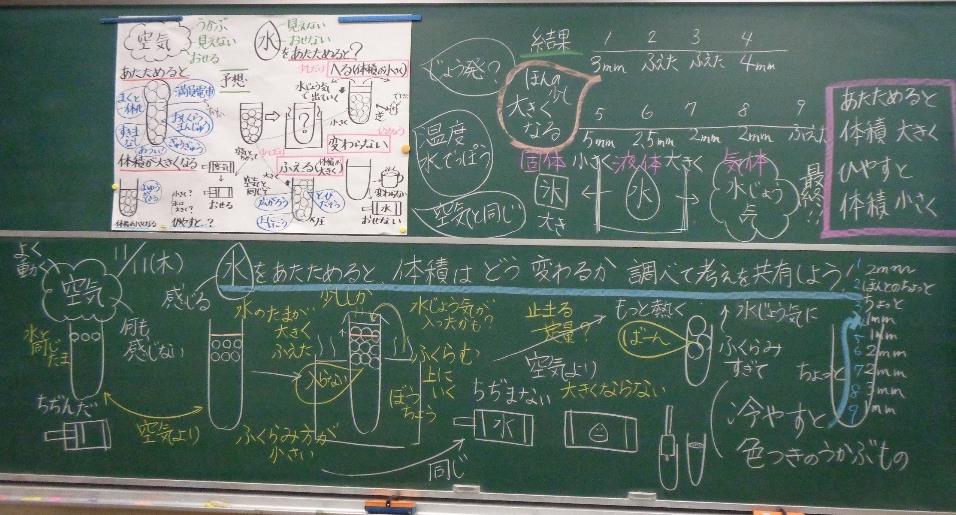 空気
うかぶ
見えない
おせる
水
見えない
おせない
をあたためると?
あたためると
予想
へる(体積が小さく)
水じょう気
出ていく
満員電車
おしくら
まんじゅう
体積が大きくなる
変わらない
ふえる(体積が大きく)
おせる
ひやすと…?
水
おせない
変わらない
じょう発?
温度
水でっぽう
空気と同じ
結果
1 2 3 4
3mm ふえた ふえた 4mm
ほんの
少し
大きく
なる
5 6 7 8 9
5mm 2,5mm 2mm 2mm ふえた
固体 小さく 液体 大きく 気体
氷
大き
水
水じょう
気
最終!!
あたためると
体積 大きく
ひやすと
体積 小さく
よく
動く
空気
11/11(木)
水をあたためると、体積はどう変わるか調べて考えを共有しよう。
感じる
何も
感じない
水と
同じ
たま
ちぢんだ
空気より
水のたまが
大きく
ふえた
入らない
ふくらみ方が
小さい
少ししか
水じょう気が
入ったかも?
ふくらむ
上に
いく
ぼう
ちょう
同じ
止まる
定量?
空気より
ちぢまない
大きくならない
水
もっと熱く
ばーん
↑水じょう気に
ふくらみ
すぎて
ちょっと
冷やすと
色つきのうかぶもの
1 2mm
2 ほんとのちょっと
ちょっと
1mm
5 1mm
6 2mm
7 2mm
8 3mm
9 1mm